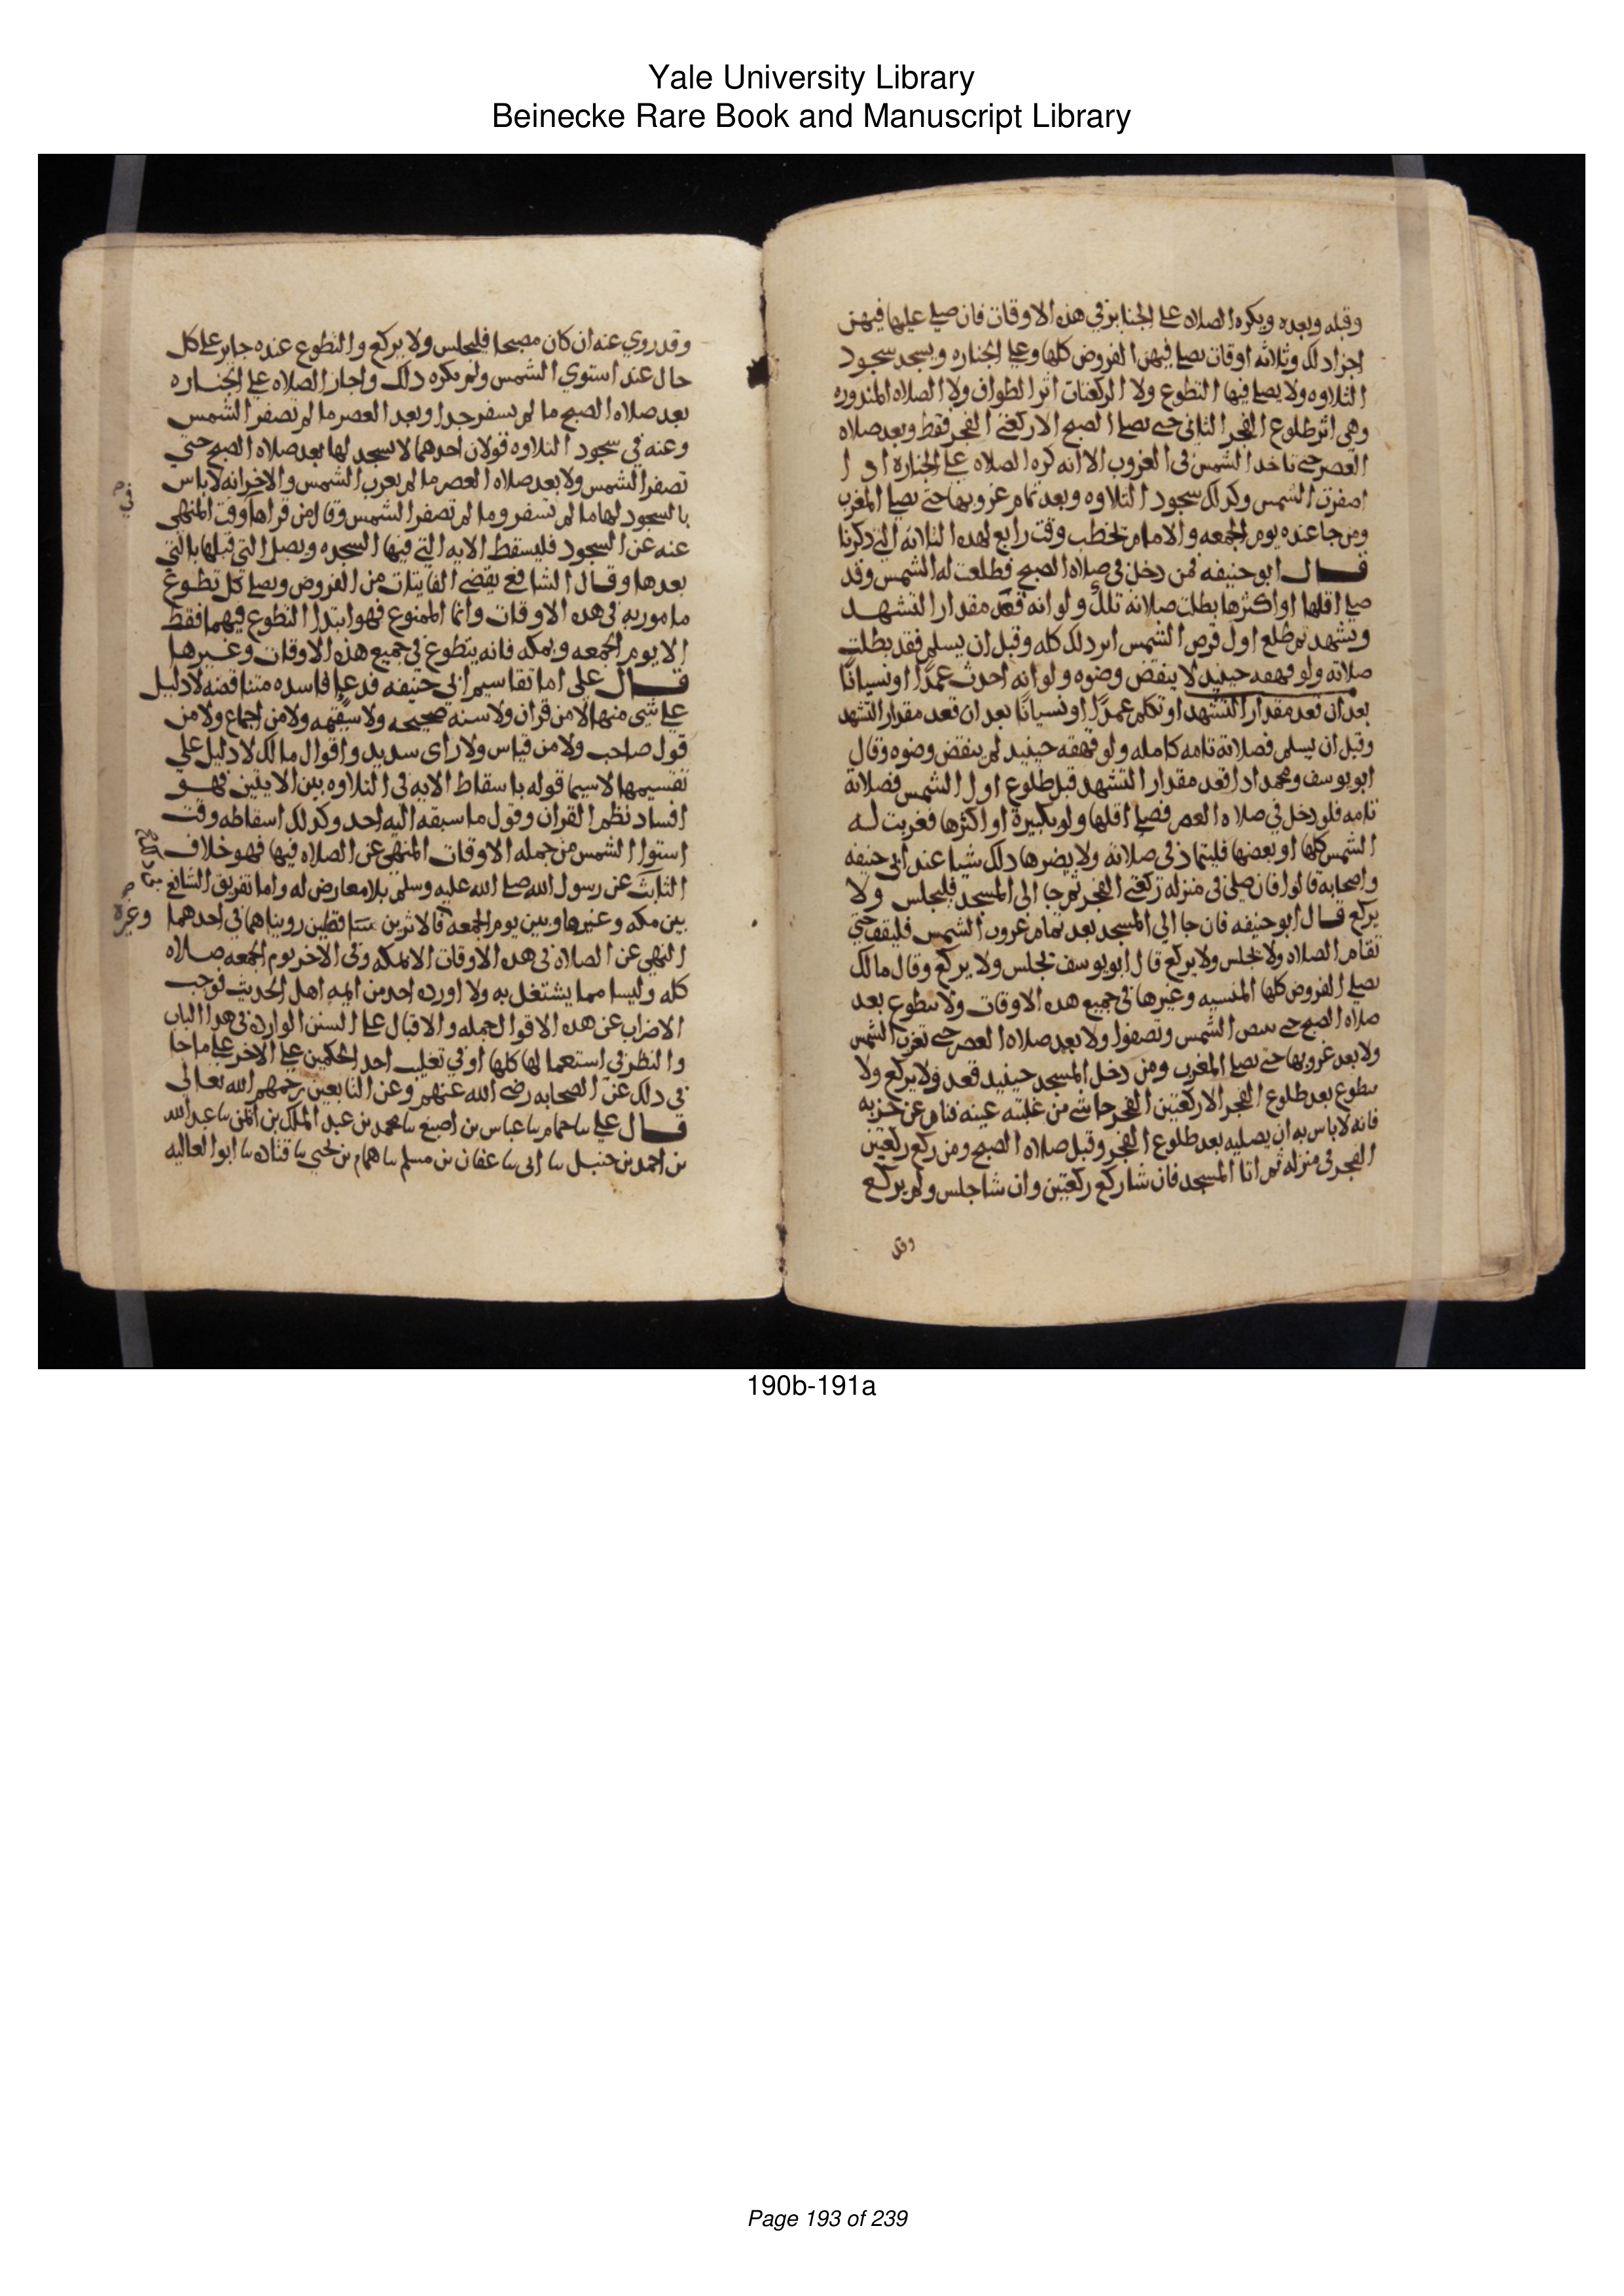 Yale University Library
Beinecke Rare Book and Manuscript Library
وقبله وبعده ويكره الصلاه على الجنايز في هذه الاوقات فان صلى عليها فيهن
اجزا ذلك وثلاثه اوقات يصلى فيهن الفروض كلها وعلى الجنازه ويسجد سجود
التلاوه ولا يصلى فيها التطوع ولا الركعتان اثر الطواف ولا الصلاه المنذوره
وهي اثر طلوع الفجر الثاني حتى يصلى الصبح الا ركعتي الفجر فقط وبعد صلاه
العصر حتى تاخذ الشمس في الغروب الا انه كره الصلاه على الجنازة اذ ا
اصفرت الشمس وكذلك سجود التلاوه وبعد تمام غروبها حتى يصلى المغرب
ومن جا عنده يوم الجمعه والامام يخطب وقت رابع لهذه الثلاثه التي ذكرنا
قال ابو حنيفه فمن دخل في صلاه الصبح فطلعت له الشمس وقد
صلى اقلها او اكثرها بطلت صلاته تلك ولو انه قعد مقدار التشهد
وتشهد ثم طلع اول قرص الشمس اثر ذلك كله وقبل ان يسلم فقد بطلت
صلاته ولو قهقه حينيذ لا ينقض وضوه ولو انه احدث عمدا او نسيانا
بعد ان قعد مقدار التشهد او تكلم عمدا او نسيانا بعد ان قعد مقدار التشهد
وقبل ان يسلم فصلاته تامه كامله ولو قهقه حينيذ لم ينقض وضوه وقال
ابو يوسف ومحمد اذا قعد مقدار التشهد قبل طلوع اول الشمس فصلاته
تامه فلو دخل في صلاه العصر فصلى اقلها ولو تكبيرة او اكثرها فغربت له
الشمس كلها او بعضها فليتماد في صلاته ولا يضرها ذلك شيا عند ابي حنيفه
واصحابه قالوا فان صلى في منزله ركعتي الفجر ثم جا الى المسجد فليجلس ولا
يركع قال ابو حنيفه فان جا الي المسجد بعد تمام غروب الشمس فليقف حتي
تقام الصلاه ولا يجلس ولا يركع قال ابو يوسف يجلس ولا يركع وقال مالك
يصلى الفروض كلها المنسيه وغيرها في جميع هذه الاوقات ولا يتطوع بعد
صلاه الصبح حتى تبيض الشمس وتصفوا ولا بعد صلاه العصر حتى تغرب الشمس
ولا بعد غروبها حتى يصلى المغرب ومن دخل المسجد حينيذ قعد ولا يركع ولا
يتطوع بعد طلوع الفجر الا ركعتين الفجر حاشى من غلبته عينه فنام عن حزبه
فانه لا باس به ان يصليه بعد طلوع الفجر وقبل صلاه الصبح ومن ركع ركعتين
الفجر في منزله ثم اتا المسجد فان شا ركع ركعتين وان شا جلس ولم يركع
وقد
وقد روي عنه ان كان مصبحا فليجلس ولا يركع والتطوع عنده جايز على كل
حال عند استوي الشمس ولم يكره ذلك واجاز الصلاه على الجنازه
بعد صلاه الصبح ما لم يسفر جدا وبعد العصر ما لم تصفر الشمس
وعنه في سجود التلاوه قولان احدهما لا يسجد لها بعد صلاه الصبح حتي
تصفر الشمس ولا بعد صلاه العصر ما لم يغرب الشمس والاخر انه لا باس
بالسجود لها ما لم تسفر وما لم تصفر الشمس وقال من قراها وقت المنهي
في
عنه عن السجود فليسقط الايه التي فيها السجده ويصل التي قبلها بالتي
بعدها وقال الشافعي يقضي الفايتات من الفروض ويصلى كل تطوع
مامور به في هذه الاوقات وانما الممنوع فهو ابتدا التطوع فيهما فقط
الا يوم الجمعه وبمكه فانه يتطوع في جميع هذه الاوقات وغيرها
قال علي اما تقاسيم ابي حنيفه فدعاو فاسده متناقضه لا دليل
على شي منها الا من قران ولا سنه صحيحه ولا سقيمه ولا من اجماع ولا من
قول صاحب ولا من قياس ولا راى سديد واقوال مالك لا دليل علي
تقسيمها لا سيما قوله باسقاط الايه في التلاوه بين الايتين فهو
افساد نظم القران وقول ما سبقه اليه احد وكذلك اسقاطه وقت
استوا الشمس من جمله الاوقات المنهي عن الصلاه فيها فهو خلاف
الثابت عن رسول الله صلى الله عليه وسلم بلا معارض له واما تفريق الشافعي
بين مكه وغيرها وبين يوم الجمعه فلاثرين ساقطين رويناهما في احدهما
وغيره
النهي عن الصلاة في هذه الاوقات الا بمكه وفي الاخر يوم الجمعه صلاه
كله وليسا مما يشتغل به ولا اورده احد من ايمه اهل الحديث فوجب
الاضراب عن هذه الاقوال جمله والاقبال على السنن الوارده في هذا الباب
والنظر في استعمالها كلها او في تغليب احد الحكمين على الاخر على ما جا
في ذلك عن الصحابه رضى الله عنهم وعن التابعين رحمهم الله تعالى
قال علي نا حمام نا عباس بن اصبغ نا محمد بن عبد الملك بن ايمن نا عبد الله
بن احمد بن حنبل نا ابى نا عفان بن مسلم نا همام بن يحيى نا قتاده نا ابو العاليه
190b-191a
Page 193 of 239